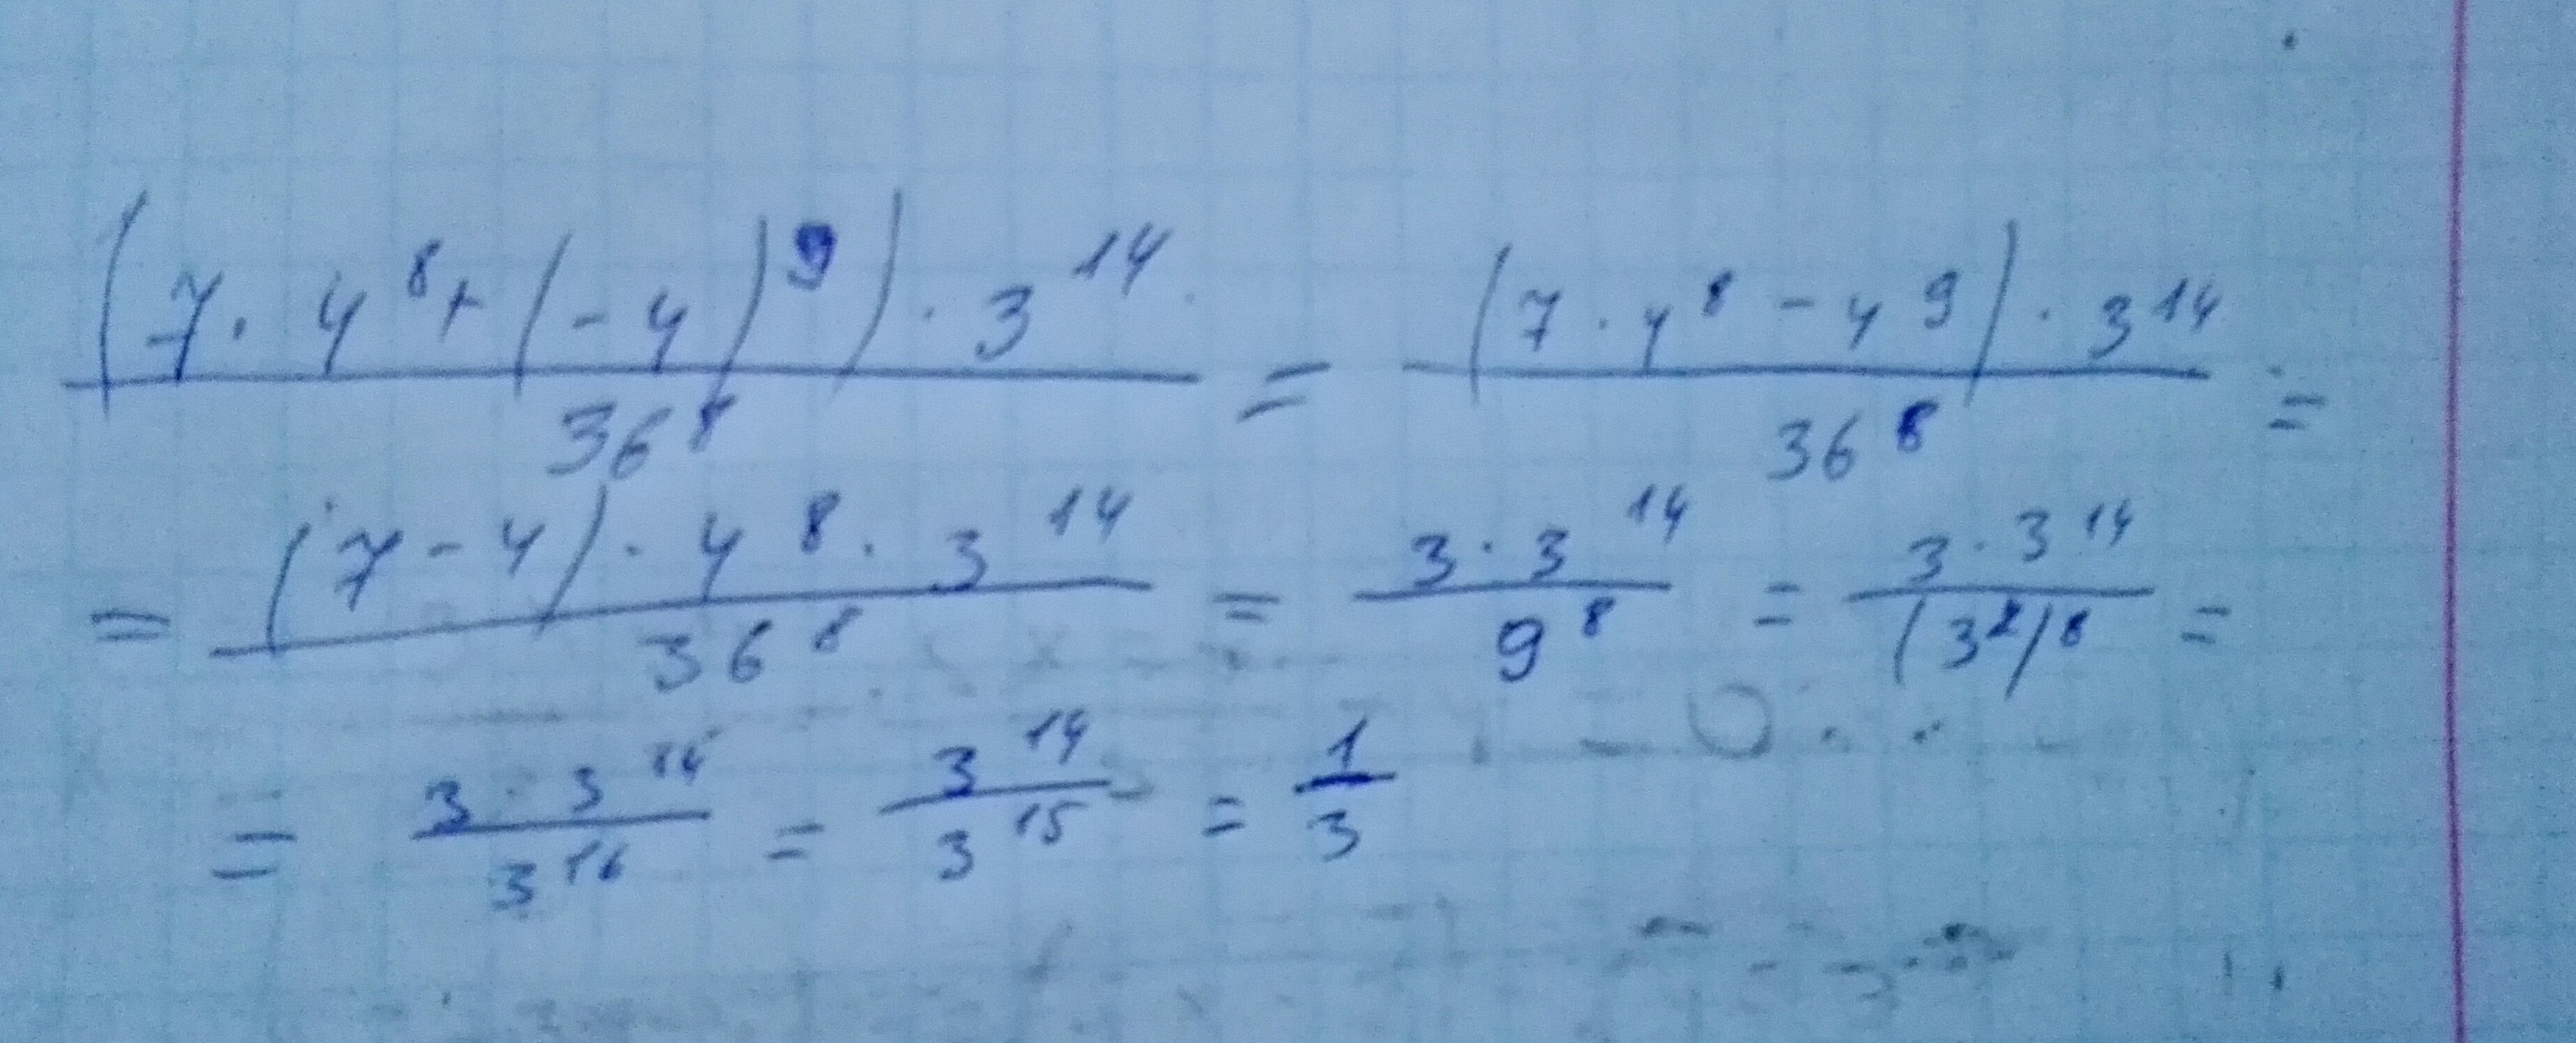 \frac{(7 \cdot 4^8 + (-4)^9) \cdot 3^{14}}{36^8} = \frac{(7 \cdot 4^8 - 4^9) \cdot 3^{14}}{36^8} =
= \frac{(7 - 4) \cdot 4^8 \cdot 3^{14}}{36^8} = \frac{3 \cdot 3^{14}}{9^8} = \frac{3 \cdot 3^{14}}{(3^2)^8} =
= \frac{3 \cdot 3^{14}}{3^{16}} = \frac{3^{14}}{3^{15}} = \frac{1}{3}